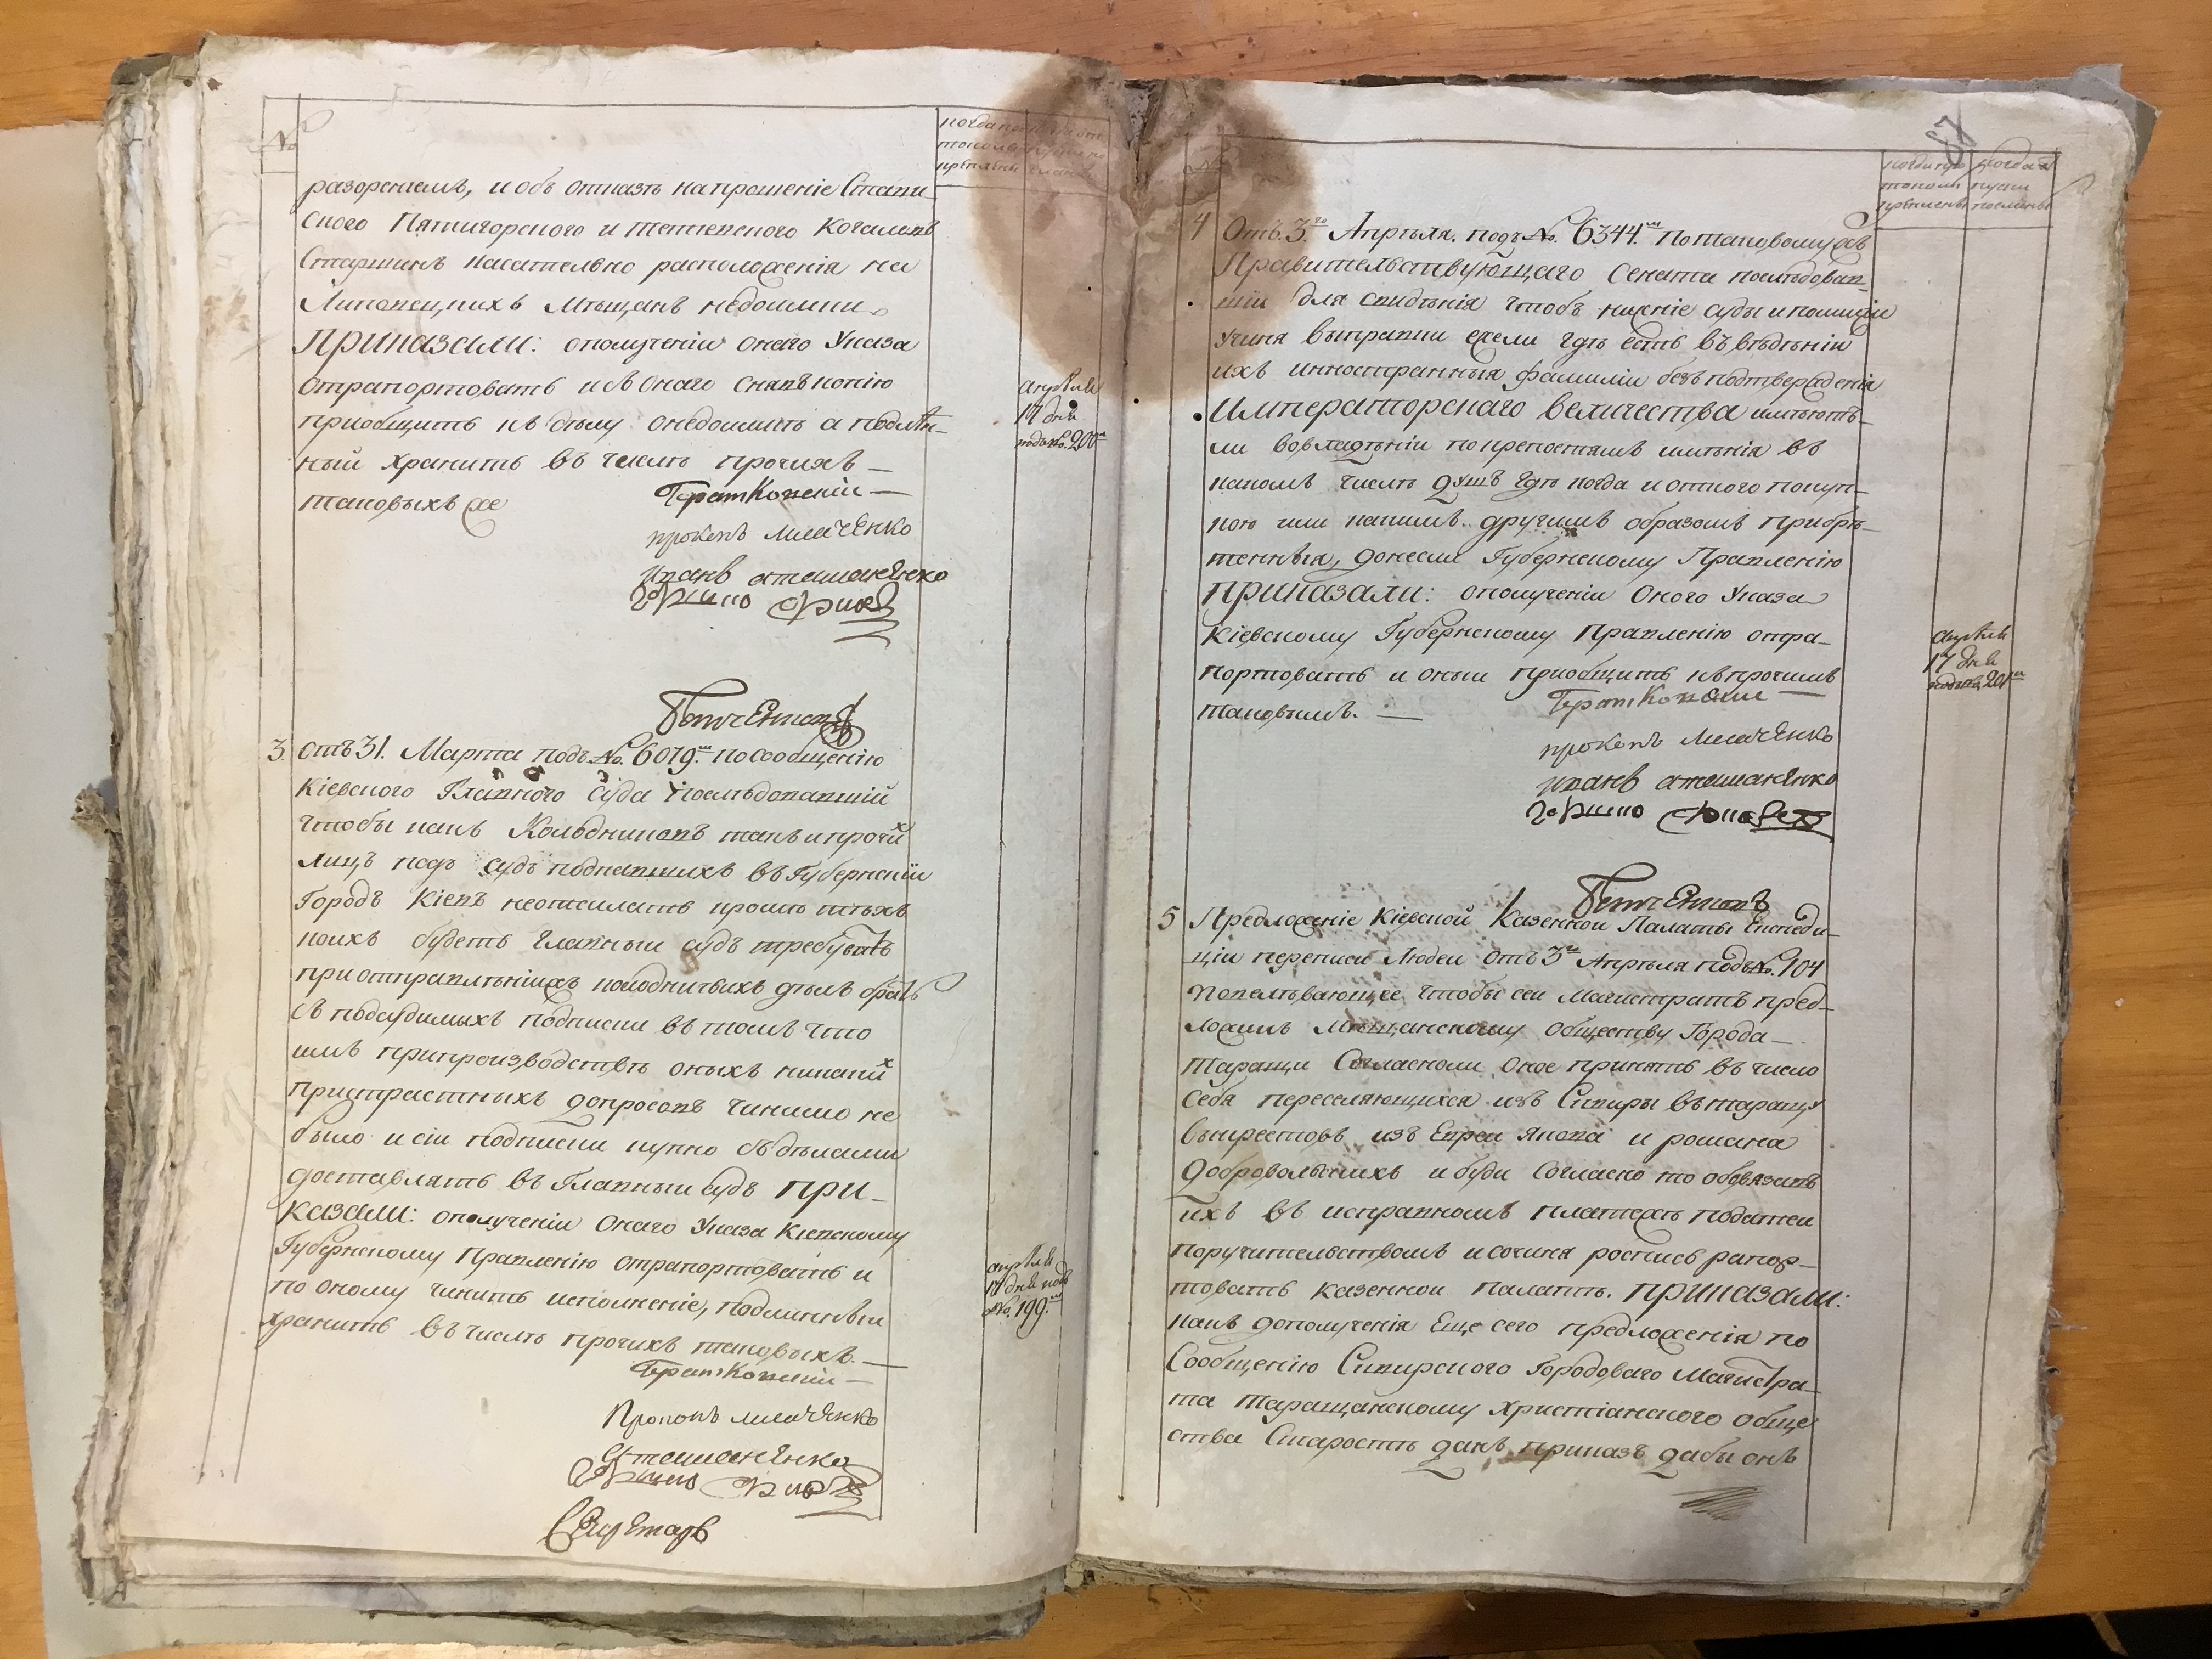 №
разорениемъ, и объ отказѣ на прошеніе Стави
ского Пятигорского и тетіевского Когаловъ
Старшинъ касательно расположенія на
Липовецкихъ Мѣщанъ недоимки.
Приказали: ополученіи онаго Указа
отрапортовать исъ онаго снявъ копію
приобщить къ дѣлу онедоимкѣ а подлѣн-
ный хранить въ числѣ прочихъ —
таковыхъ же
прокопъ лисаченко
иванъ аташаненко
апрѣля
17 дня
подъ №. 200м
3. отъ 31. Марта подъ №. 6079.м посообщенію
Кіевского Главного Суда последовавшій
чтобы какъ Колодниковъ такъ и прочих
лицъ подъ судъ подпавшихъ въ Губернскій
Городъ Кіевъ неотсилать кромѣ тѣхъ
коихъ будетъ главный судъ требувать
при отправлѣніихъ колодничьихъ дѣлъ брать
съ подсудимыхъ подписки въ томъ что
имъ припроизводствѣ оныхъ никаких
пристрастныхъ допросовъ чинимо не
было и сіи подписки купно съ дѣлами
доставлять въ Главный судъ при-
казали: ополученіи онаго Указа Кіевскому
Губернскому Правленію отрапортовать и
по оному чинить исполненіе, подлинный
хранить въ числѣ прочихъ таковыхъ. —
апрѣля
17 дня подъ
№. 199.м
Прокопъ лисаченко
Аташаненко
Секретарь
57
4 Отъ. 3.го Апрѣля. подъ №. 6344.м потаковомужъ
Правительствующаго Сената последовав
шій для свидѣнія чтобъ нижніе суды и полиціи
учиня выправки ежели гдѣ есть въ вѣдѣніи
ихъ инностранныя фамиліи безъ подтвержденія
Императорскаго величества имѣютъ-
ли вовладѣніи по крепостямъ имѣнія въ
какомъ числѣ душъ гдѣ когда и откого покуп-
кою или какимъ другимъ образомъ приобрѣ-
тенныя, донесли Губернскому Правленію
приказали: ополученіи оного Указа
Кіевскому Губернскому Правленію отра-
портовать и оный приобщить къ прочимъ
таковымъ. —
апрѣля
17 дня
подъ № 201м
прокопъ лисаченко
иванъ аташаненко
5 Предложеніе Кіевской Казенной Палаты Експеди-
ціи переписи Людей отъ 3го Апрѣля подъ №. 104
повелѣвающее чтобы сей Магистратъ пред-
ложилъ Мѣщанскому обществу Города —
таращи Согласноли оное принять въ число
себя переселяющихся изъ Сквиры въ таращу
выкрестовъ изъ Евреи Якова и романа
Добровольскихъ и буди Согласно то обовязавъ
ихъ въ исправномъ платежѣ податей
поручительствомъ и сочиня роспись рапор-
товать казенной палатѣ. приказали:
какъ дополученія Еще сего предложенія по
Сообщенію Сквирского Городоваго Магистра-
та таращанскому христіанского обще
ства Старостѣ данъ приказъ дабы онъ